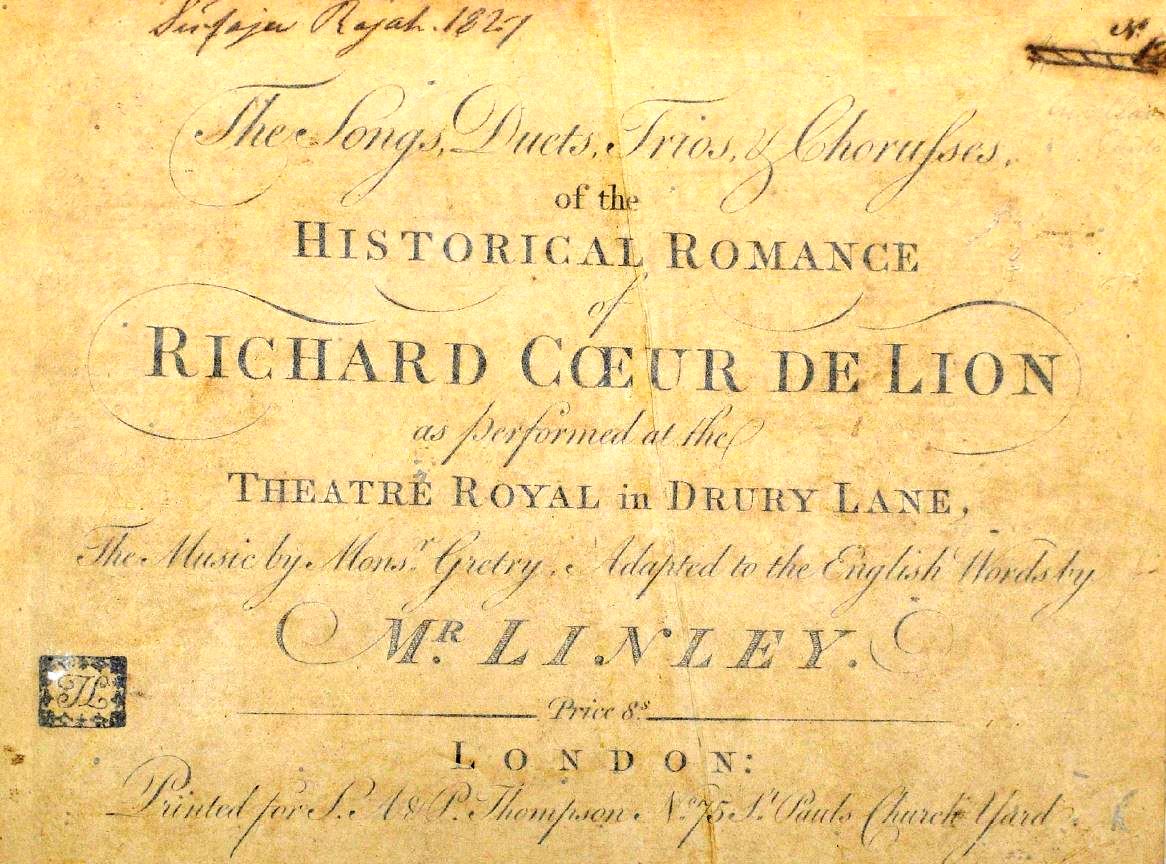 Rajah. 1827
No
The Songs, Duets, Trios, & Choruſses,
of the
HISTORICAL ROMANCE
of
RICHARD CŒUR DE LION
as performed at the
THEATRE ROYAL in DRURY LANE,
The Music by Monsr. Gretry, Adapted to the English Words by
MR. LINLEY.
Price 8s.
LONDON:
Printed for S. A & P. Thompson No. 75 St. Pauls Church Yard